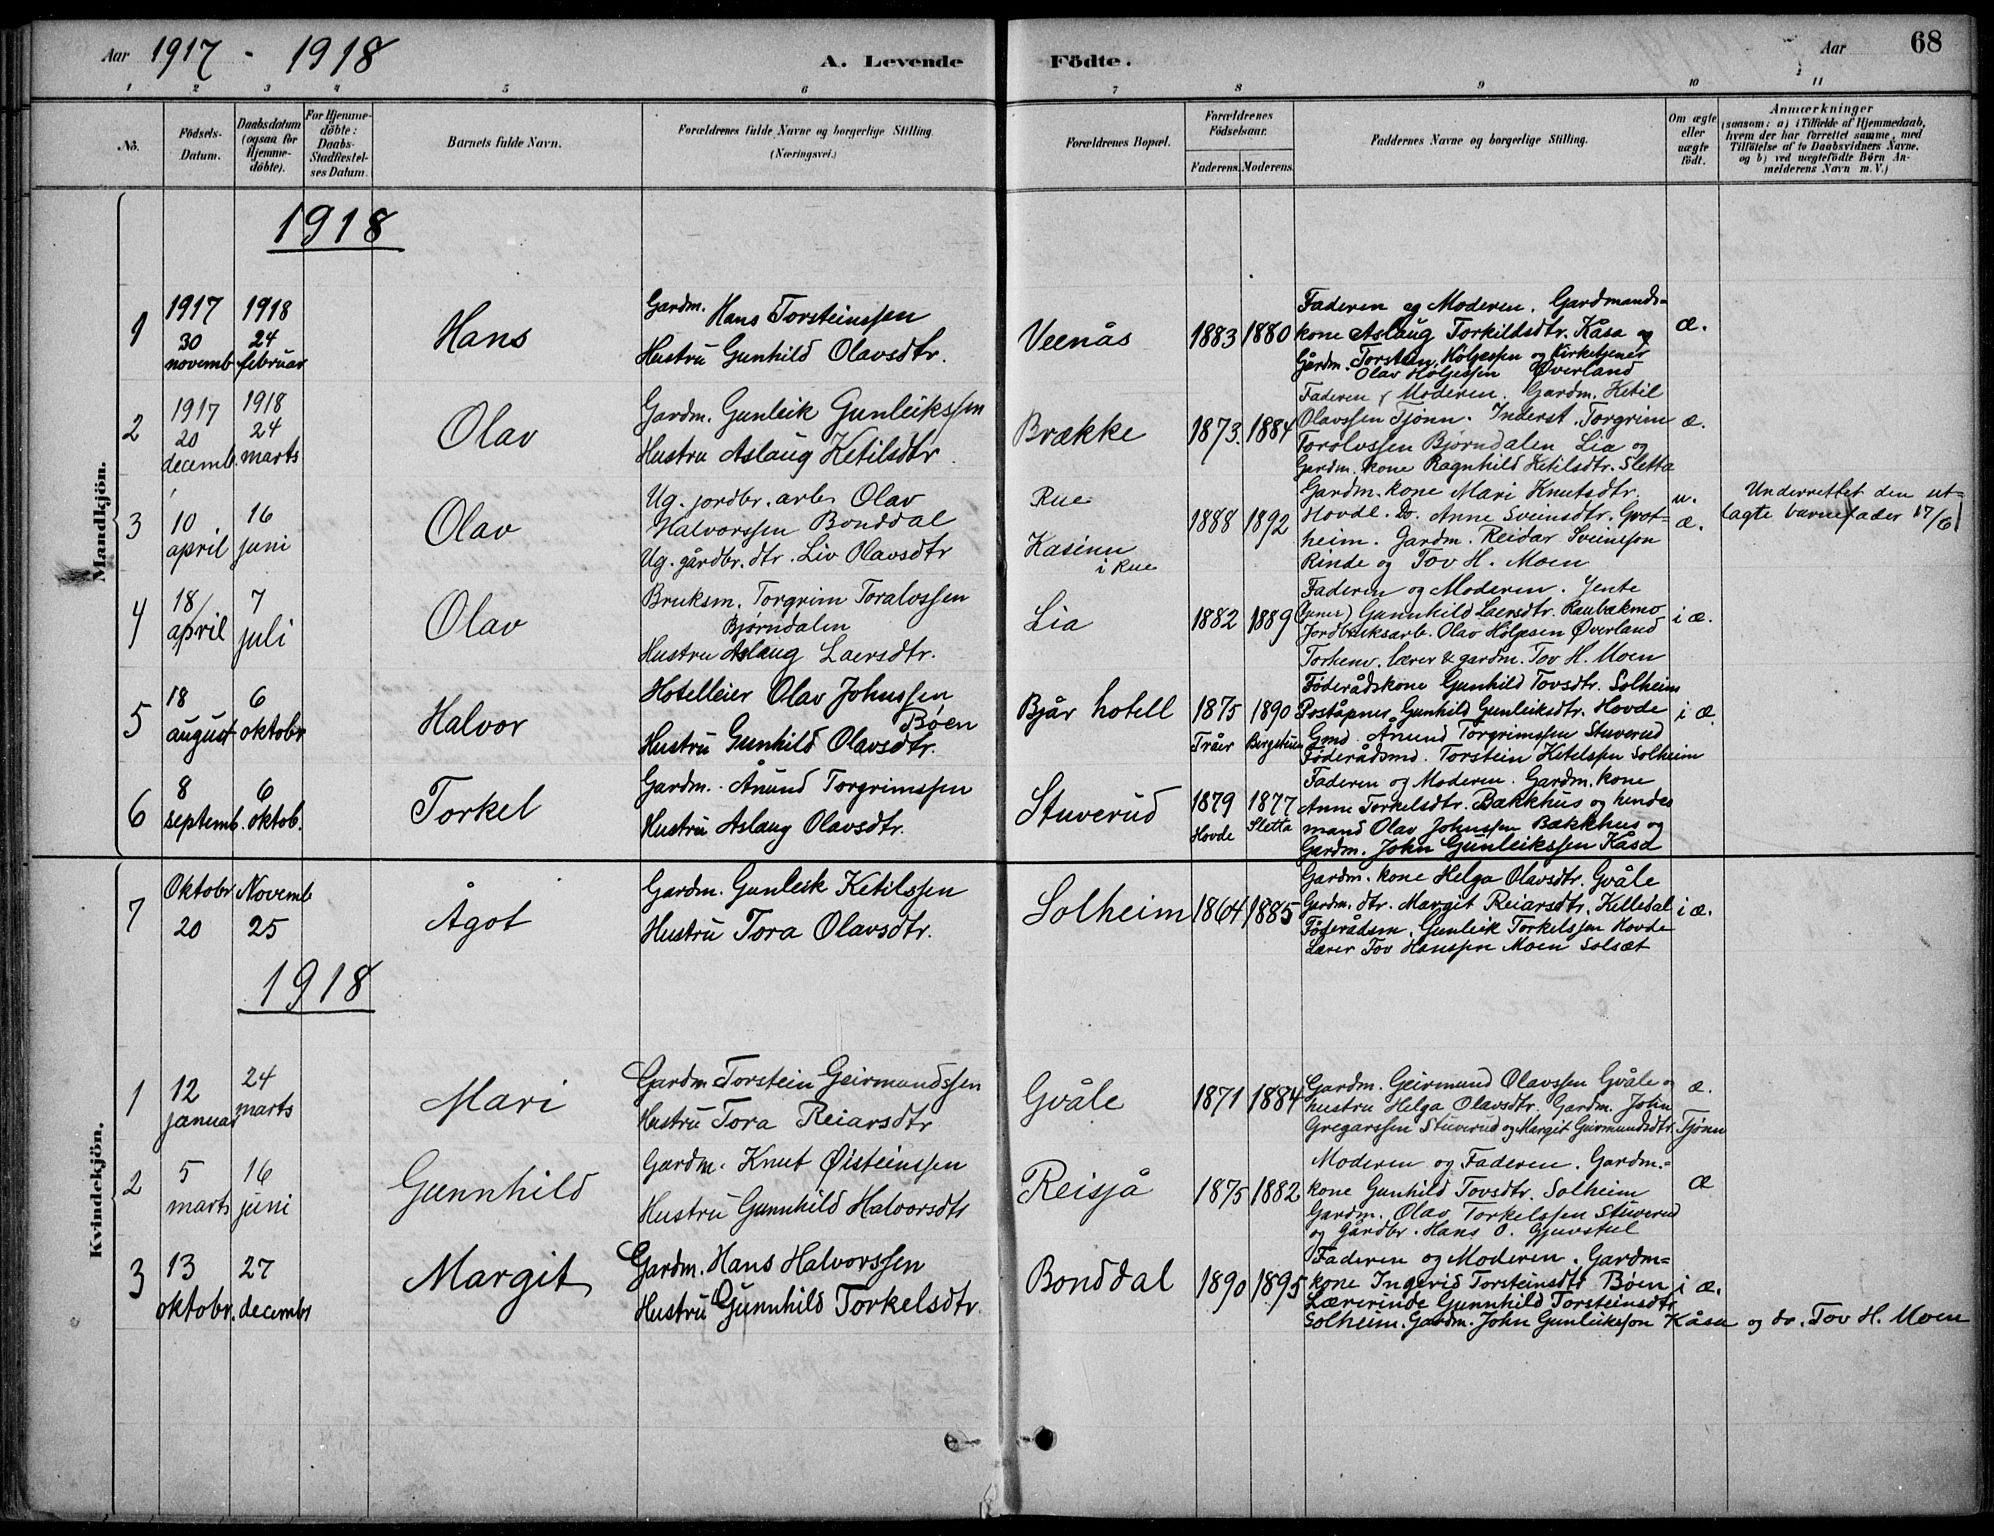 Aar 1917 - 1918
A. Levende Födte.
Aar
68
1 2 3 4 5 6 7 8 9 10 11
No.
Födsels-
Datum.
Daabsdatum
(ogsaa for
Hjemme-
döbte).
For Hjemme-
döbte:
Daabs-
Stadfæstel-
ses Datum.
Barnets fulde Navn.
Forældrenes fulde Navne og borgerlige Stilling.
(Næringsvei.)
Forældrenes Bopæl.
Forældrenes
Födselsaar.
Faderens. Moderens.
Faddernes Navne og borgerlige Stilling.
Om ægte
eller
uægte
födt.
Anmærkninger
(saasom: a) i Tilfælde af Hjemmedaab,
hvem der har forrettet samme, med
Tilföielse af to Daabsvidners Navne.
og b) ved uægtefödte Börn An-
melderens Navn m. V.)
Mandkjön.
1918
1
1917
30
novemb.
1918
24
februar
Hans
Gardm. Hans Torsteinssen
Hustru Gunhild Olavsdtr.
Veenås
1883 1880
Faderen og Moderen. Gardmands-
kone Aslaug Torkildsdtr. Kåsa og
Gårdm. Torstein Hölgessen og Kirketjener
Olav Hølgessen Øverland
æ.
2
1917
20
decemb.
1918
24
marts
Olav
Gardm. Gunleik Gunleikssen
Hustru Aslaug Ketilsdtr.
Brække
1873. 1884
Faderen & Moderen. Gardm. Ketil
Olavssen Tjønn. Inderst. Torgrim
Torolvssen Bjørndalen Lia og
Gardm. kone Ragnhild Ketilsdtr. Sletta
æ.
3
10.
april
16
juni
Olav
Ug. jordbr. arb. Olav
Halvorssen Bonddal
Ug. gårdbr. dtr. Liv Olavsdtr
Rue
Kasinn
i Rue
1888 1892
Gardm. kone Mari Knutsdtr.
Hovde. Do. Anne Sveinsdtr. Grot-
heim. Gardm. Reidar Sveinsson
Rinde og Tov H. Moen
u.
æ.
Underrettet den ut-
lagte barnefader 17/6
4
18
april
7
juli
Olav
Bruksm. Torgrim Toralvssen
Bjørndalen
Hustru Aslaug Laersdtr.
Lia
1882 1889
Faderen og Moderen. Jente
Gunnhild Laersdtr. Raubakmo
Jordbruksarb. Olav Hölgesen Øverland
lærer & gardm. Tov H. Moen
i æ.
5
18
august
6
oktobr.
Halvor
Hotelleier Olav Johnssen
Bøen
Hustru Gunhild Olavsdtr.
Bjår hotell
1875 1890
Tråer
Føderådskone Gunhild Tovsdtr. Solheim
Poståpner Gunhild Gunleiksdtr. Hovde
Gmd. Ånund Torgrimssen Stuverud
Føderådsmd. Torstein Ketelssen Solheim
i æ.
6
8
septemb.
6
oktob.
Torkel
Gardm. Ånund Torgrimssen
Hustru Aslaug Olavsdtr.
Stuverud
1879 1877
Hovde Sletta
Faderen og Moderen. Gardm. kone
Anne Torkelsdtr. Bakkhus og hendes
mand Olav Johnssen Bakkhus og
Gardm. John Gunleikssen Kåsa
7
Oktobr.
20
Novemb
25
Ågot
Gardm. Gunleik Ketilssen
Hustru Tora Olavsdtr.
Solheim
1864 1885
Gardm. kone Helga Olavsdtr. Gvåle
Gardm. dtr. Margit Reiarsdtr. Killedal
Föderådsm. Gunleik Torkelssen Hovde
Lærer Tov Hanssen Moen Solsæt
i æ.
Kvindekjön.
1918
1
12
januar
24
marts
Mari
Gardm. Torstein Geirmundssen
Hustru Tora Reiarsdtr
Gvåle
1871 1884
Gardm. Geirmund Olavssen Gvåle og
hustru Helga Olavsdtr. Gardm. John
Gregarssen Stuverud og Margit Geirmundsdtr. Tjönn
æ.
2
5
marts
16
juni
Gunnhild
Gardm. Knut Øisteinssen
Hustru Gunnhild Halvorsdtr
Reisjå
1875 1882
Moderen og Faderen. Gardm.-
kone Gunhild Tovsdtr. Solheim
Gardm. Olav Torkelssen Stuverud
og Gårdbr. Hans O. Gjuvstul
æ
3
13
oktobr.
27
decembr
Margit
Gardm. Hans Halvorssen
Hustru Gunnhild Torkelsdtr.
Bonddal
1890 1895
Faderen og Moderen. Gardm-
kone Ingerid Torsteinsdtr Bøen
Lærerinde Gunnhild Torsteinsdtr.
Solheim. Gardm. John Gunleiksson Kåsa og do. Tov H. Moen
i æ.